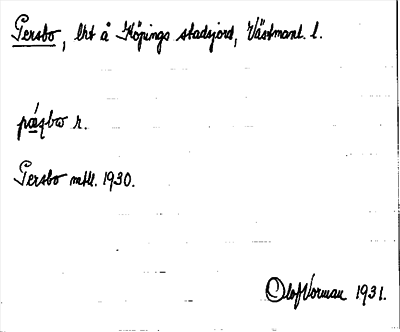 Persbo, lht å Köpings stadsjord, Västmanl. l.
pä́ʂbω r.
Persbo mtll. 1930.
Olof Norman 1931.